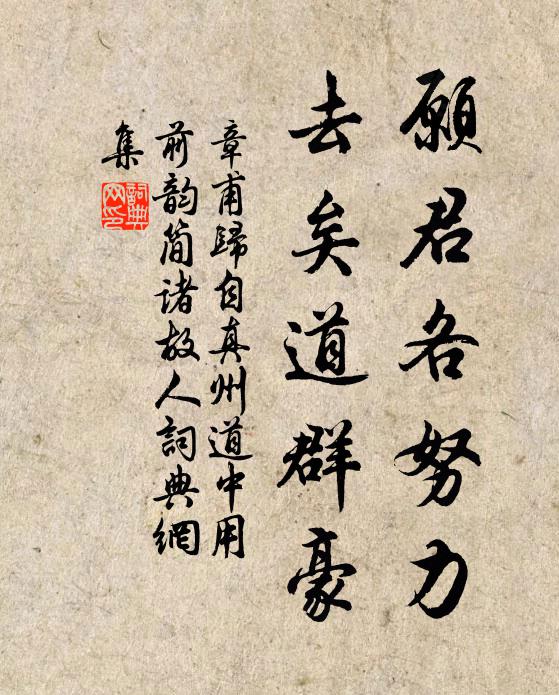 願君各努力
去矣道群豪
章甫歸自真州道中用
前韵简諸故人詞典網
集
詞典
网印